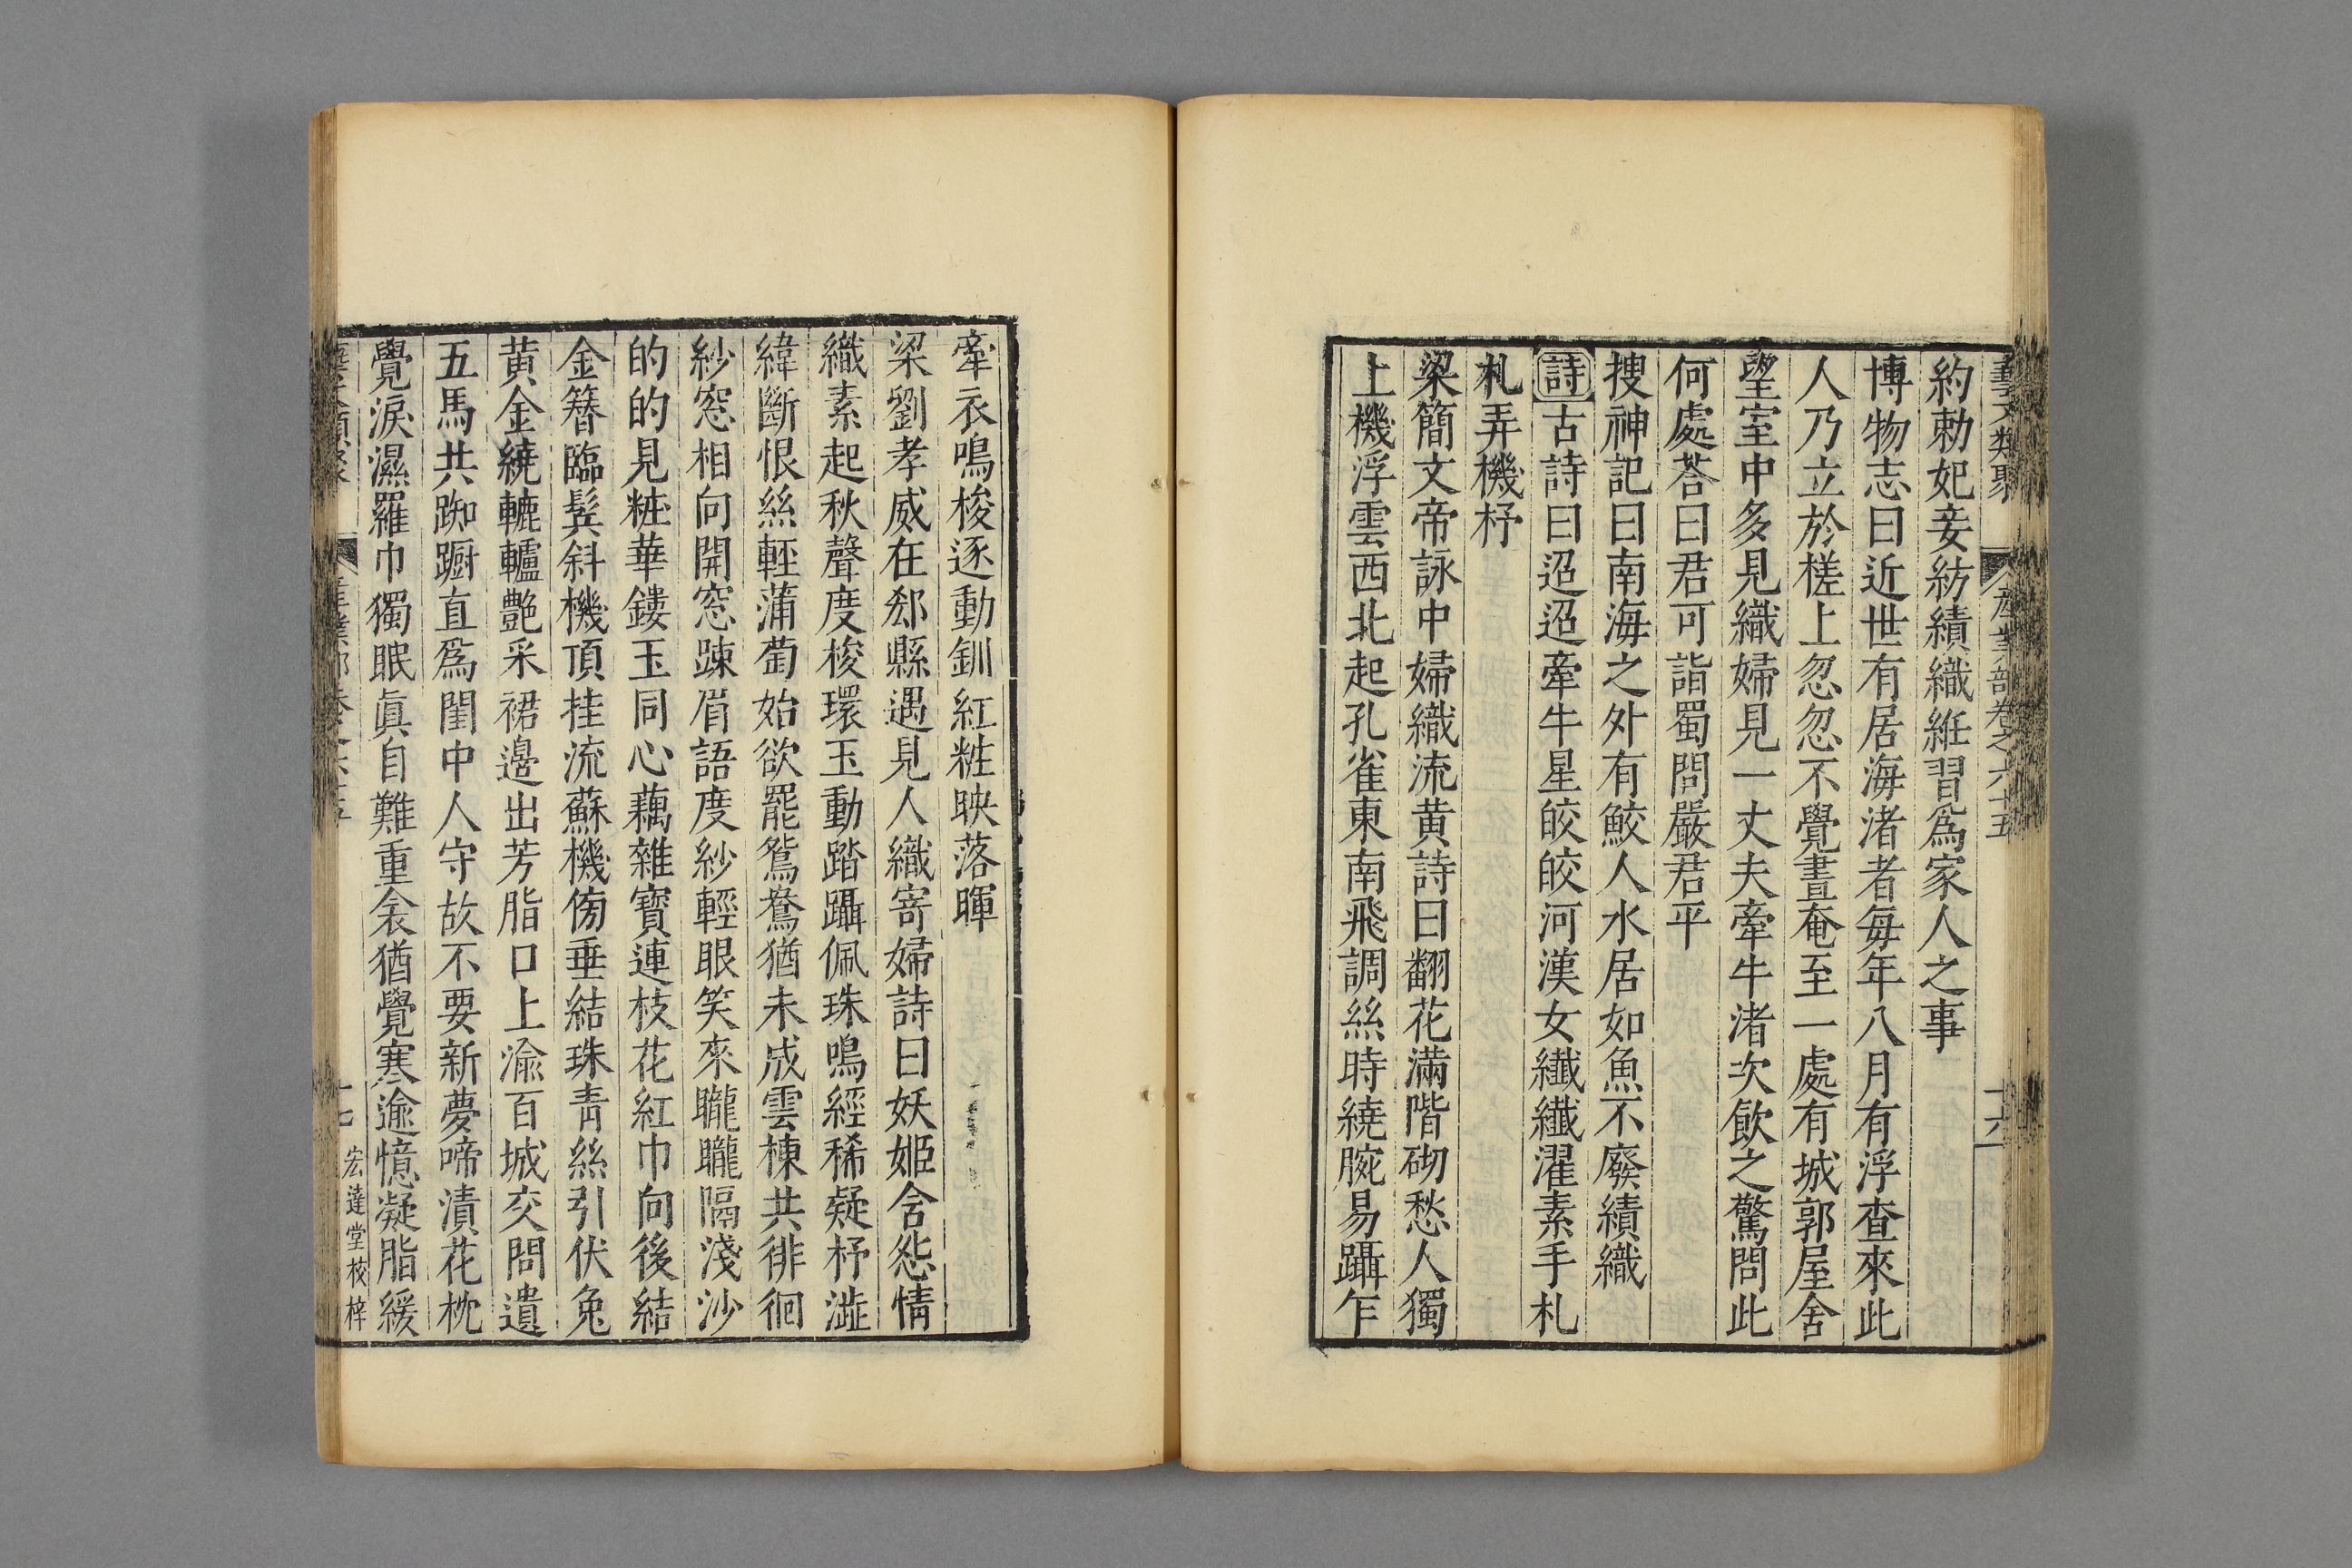 藝文類聚 產業部卷之六十五 十六
約勅妃妾紡績織絍習爲家人之事
博物志曰近世有居海渚者每年八月有浮查來此
人乃立於槎上忽忽不覺晝奄至一處有城郭屋舍
望室中多見織婦見一丈夫牽牛渚次飲之驚問此
何處荅曰君可詣蜀問嚴君平
搜神記曰南海之外有鮫人水居如魚不廢績織
詩古詩曰迢迢牽牛星皎皎河漢女纖纖濯素手札
札弄機杼
梁簡文帝詠中婦織流黃詩曰翻花滿階砌愁人獨
上機浮雲西北起孔雀東南飛調絲時繞腕易躡乍
牽衣鳴梭逐動釧紅粧映落暉
梁劉孝威在郄縣遇見人織寄婦詩曰妖姬含怨情
織素起秋聲度梭環玉動踏躡佩珠鳴經稀疑杼澁
緯斷恨絲輕蒲萄始欲罷鴛鴦猶未成雲棟共徘徊
紗窓相向開窓踈眉語度紗輕眼笑來矓矓隔淺沙
的的見粧華鏤玉同心藕雜寶連枝花紅巾向後結
金簪臨鬂斜機頂挂流蘇機傍垂結珠青絲引伏兔
黃金繞轆轤艶采裙邊出芳脂口上渝百城交問遺
五馬共踟躕直爲閨中人守故不要新夢啼漬花枕
覺淚濕羅巾獨眠眞自難重衾猶覺寒逾憶凝脂緩
藝文類聚 產業部卷之六十五 十七 宏達堂校梓